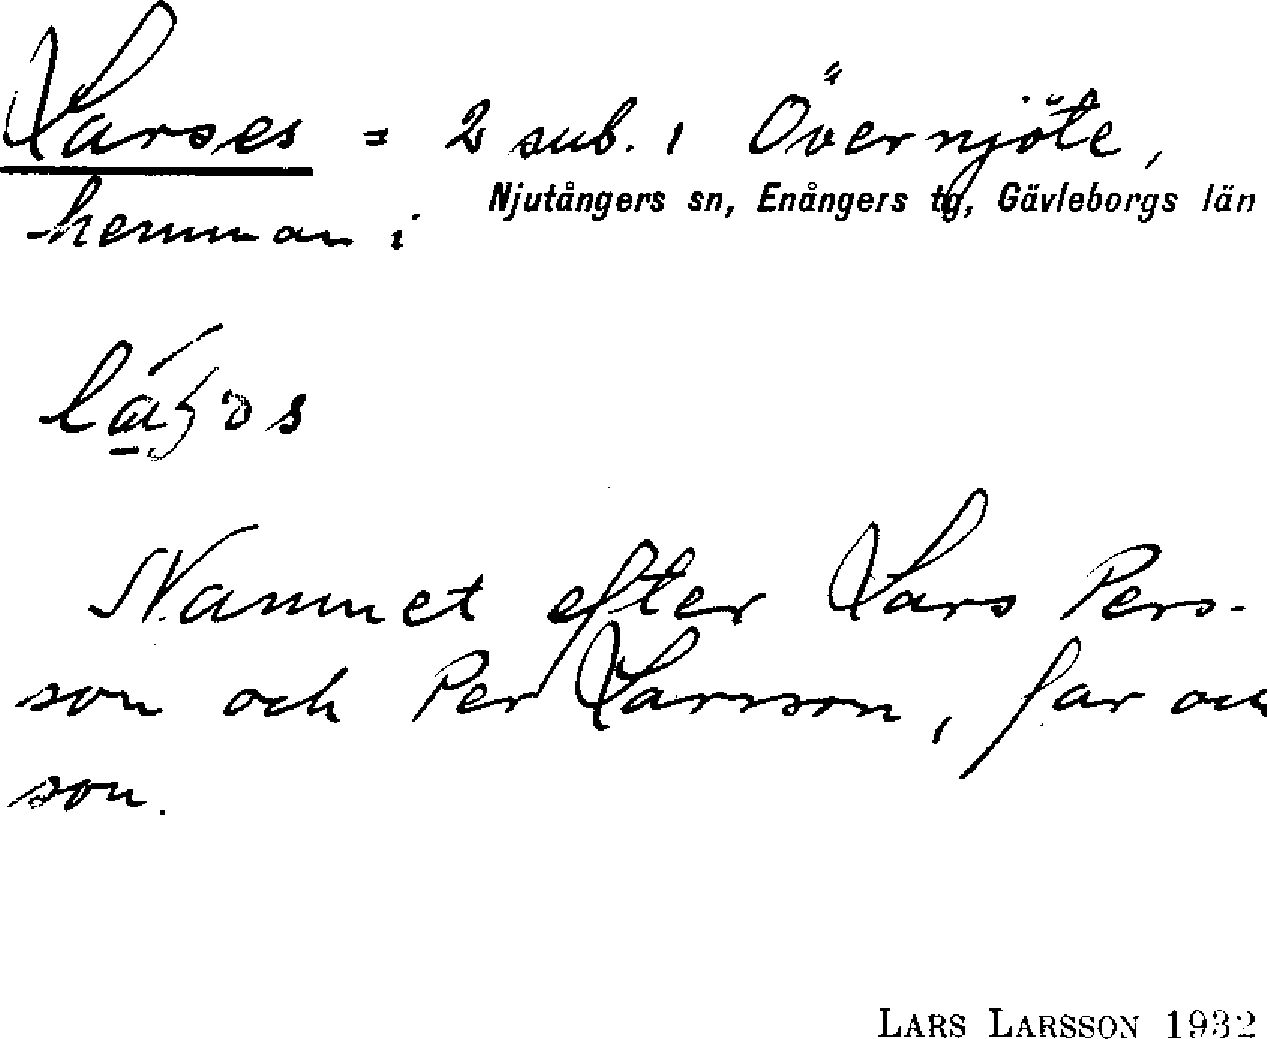 Larses = 2 sub. i Övernjöte,
hemman i Njutångers sn, Enångers tg, Gävleborgs län
Namnet efter Lars Pers-
son och Per Larsson, far och
son.
LARS LARSSON 1932